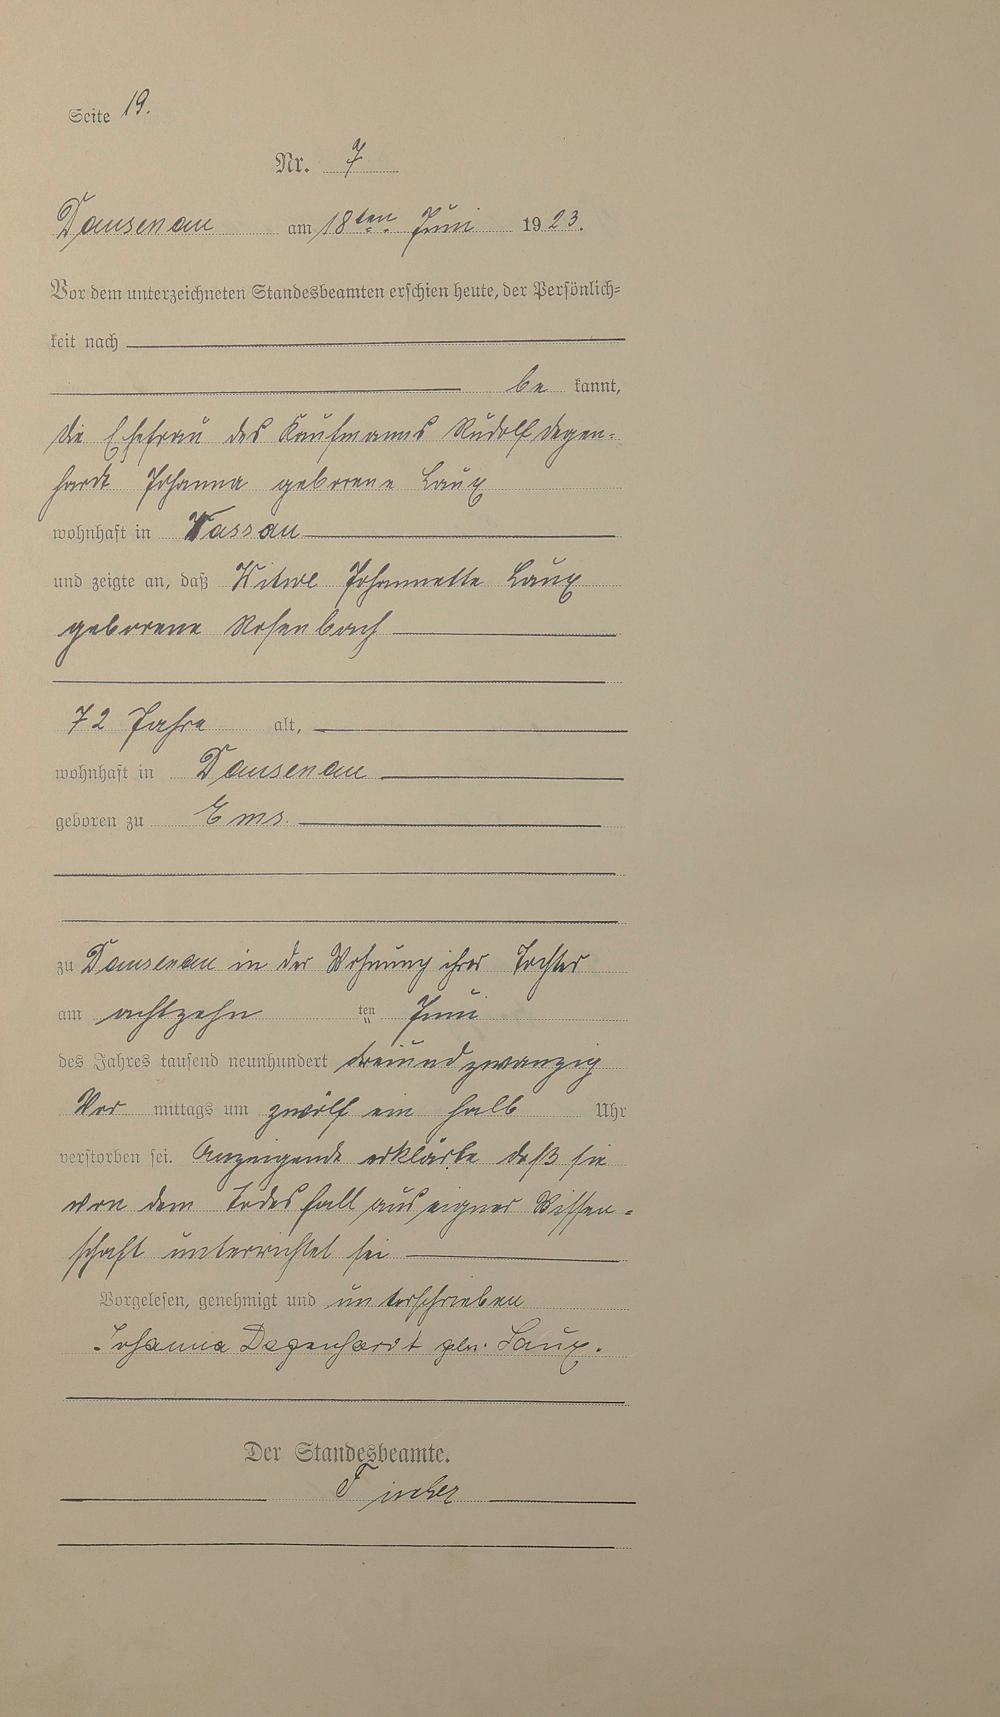 Seite 19.
Nr. 7
Dausenau am 18ten Juni 1923.
Vor dem unterzeichneten Standesbeamten erschien heute, der Persönlich=
keit nach
be kannt,
die Ehefrau des Kaufmanns Rudolf Degen-
hardt Johanna geborene Laux
wohnhaft in Nassau
und zeigte an, daß Witwe Johannette Laux
geborene Rosenbach
72 Jahre alt,
wohnhaft in Dausenau
geboren zu Ems.
zu Dausenau in der Wohnung ihrer Tochter
am achtzehn ten Juni
des Jahres tausend neunhundert dreiundzwanzig
Vor mittags um zwölf ein halb Uhr
verstorben sei. Anzeigende erklärte daß sie
von dem Todesfall aus eigner Wissen-
schaft unterrichtet sei
Vorgelesen, genehmigt und unterschrieben
Johanna Degenhardt geb. Laux.
Der Standesbeamte.